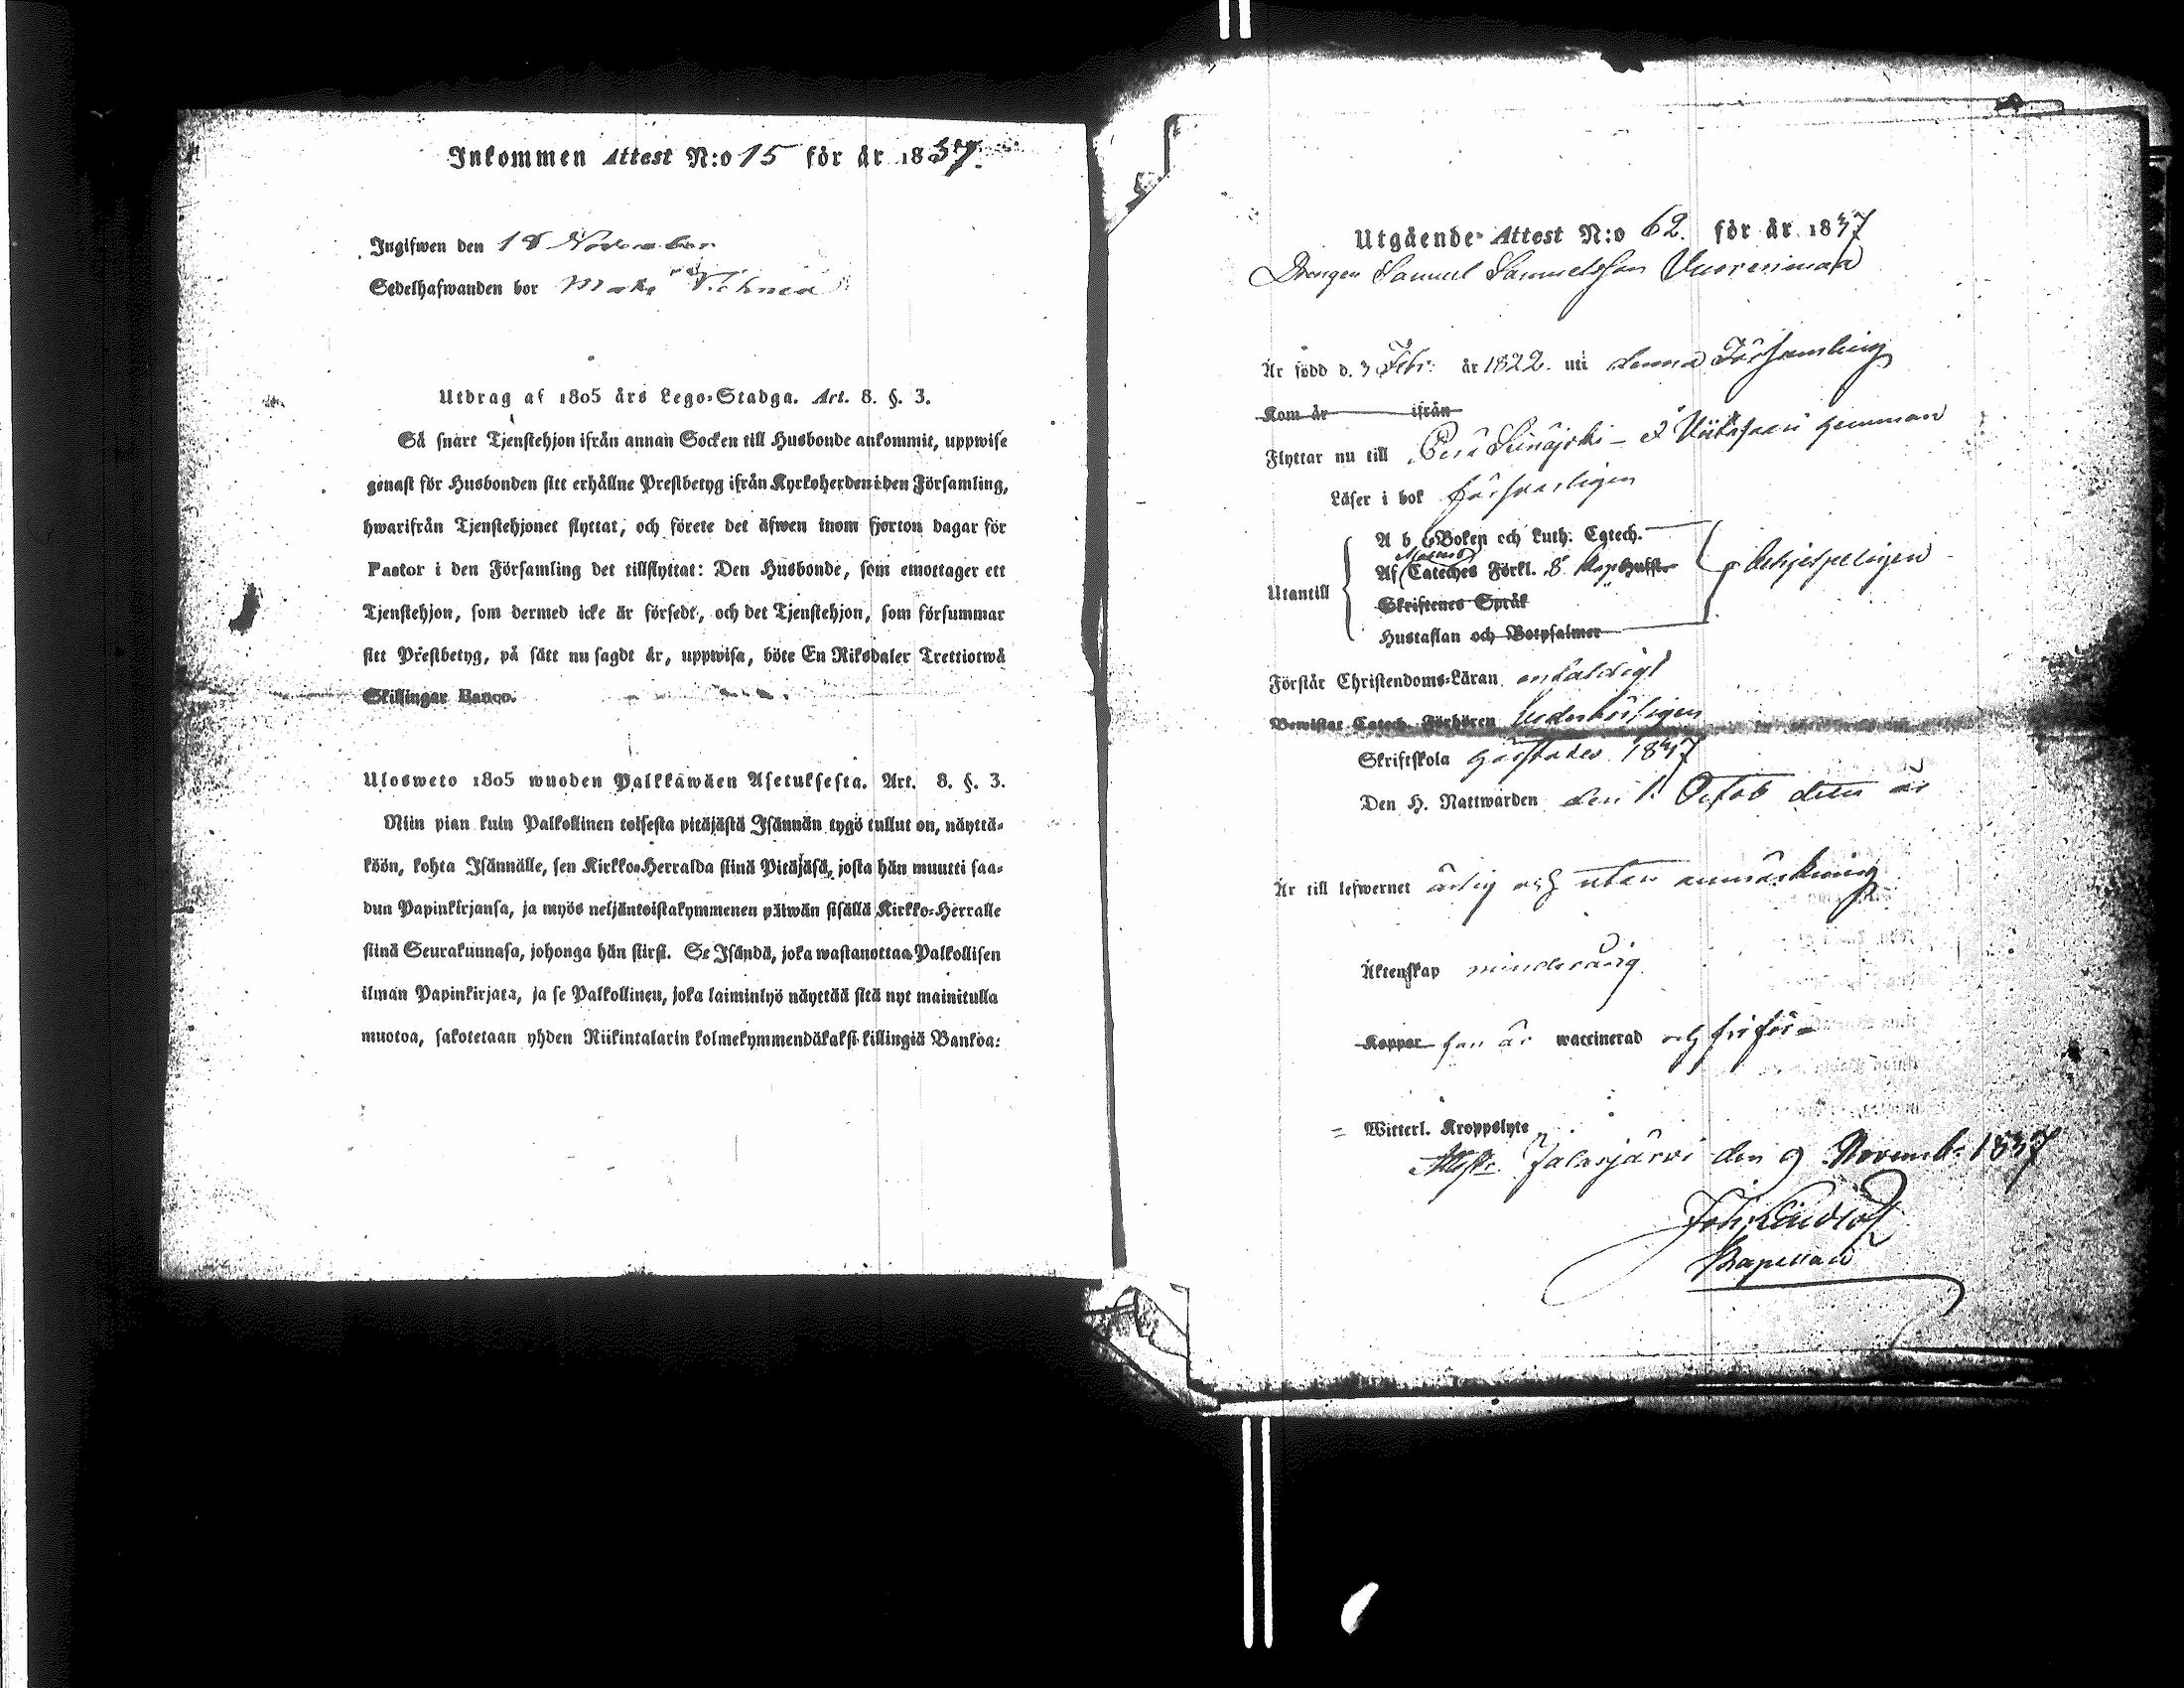 Inkommen Attest N:o 15 för år 1837.
Ingifwen den 18 November
Sedelhafwanden bor Mäki
Utdrag af 1805 års Lego-Stadga. Art. 8. §. 3.
Så snart Tjenstehjon ifrån annan Socken till Husbonde ankommit, uppwise
genast för Husbonden sitt erhållne Prestbetyg ifrån Kyrkoherden i den Församling,
hwarifrån Tjenstehjonet flyttat, och förete det äfwen inom fjorton dagar för
Pastor i den Församling det tillflyttat: Den Husbonde, som emottager ett
Tjenstehjon, som dermed icke är försedt, och det Tjenstehjon, som försummar
sitt Prestbetyg, på sätt nu sagdt är, uppwisa, böte En Riksdaler Trettiotwå
Skillingar Banco.
Ulosweto 1805 wuoden Palkkawäen Asetuksesta. Art. 8. §. 3.
Niin pian kuin Palkollinen toisesta pitäjästä Isännän tygö tullut on, näyttä-
köön, kohta Isännälle, sen Kirkko-Herralda siinä Pitäjäsä, josta hän muutti saa-
dun Papinkirjansa, ja myös neljäntoistakymmenen päiwän sisällä Kirkko-Herralle
siinä Seurakunnasa, johonga hän siirsi. Se Isändä, joka wastanottaa Palkollisen
ilman Papinkirjata, ja se Palkollinen, joka laiminlyö näyttää sitä nyt mainitulla
muotoa, sakotetaan yhden Riikintalarin kolmekymmendäkaksi killingiä Bankoa:
Utgående Attest N:o 62. för år 1837
Drengen Samuel Samuelsson Vuorenmaa
Är född d. 3 Febr: år 1822. uti denna Församling
Kom år ifrån
Flyttar nu till Perä Seinäjoki - hemman
Läser i bok försvarligen
A b c Boken och Luth. Catech.
Af Cateches Förkl. 8 Hufst.
Utantill behjelpeligen
Skriftenes Språk
Hustaflan och Botpsalmer
Förstår Christendoms-Läran enfaldigt
Bewistar Catech. Förhören vederbörligen
Skriftskola 1837
Den H. Nattwarden den 1. Octob detta år
Är till lefwernet ärlig och utan anmärkning
Äktenskap minderårig
Koppor han är waccinerad och frisk
Witterl. Kroppslyte
Attest. Jalasjärvi den 9 Novemb. 1837
Joh:
Kapellan